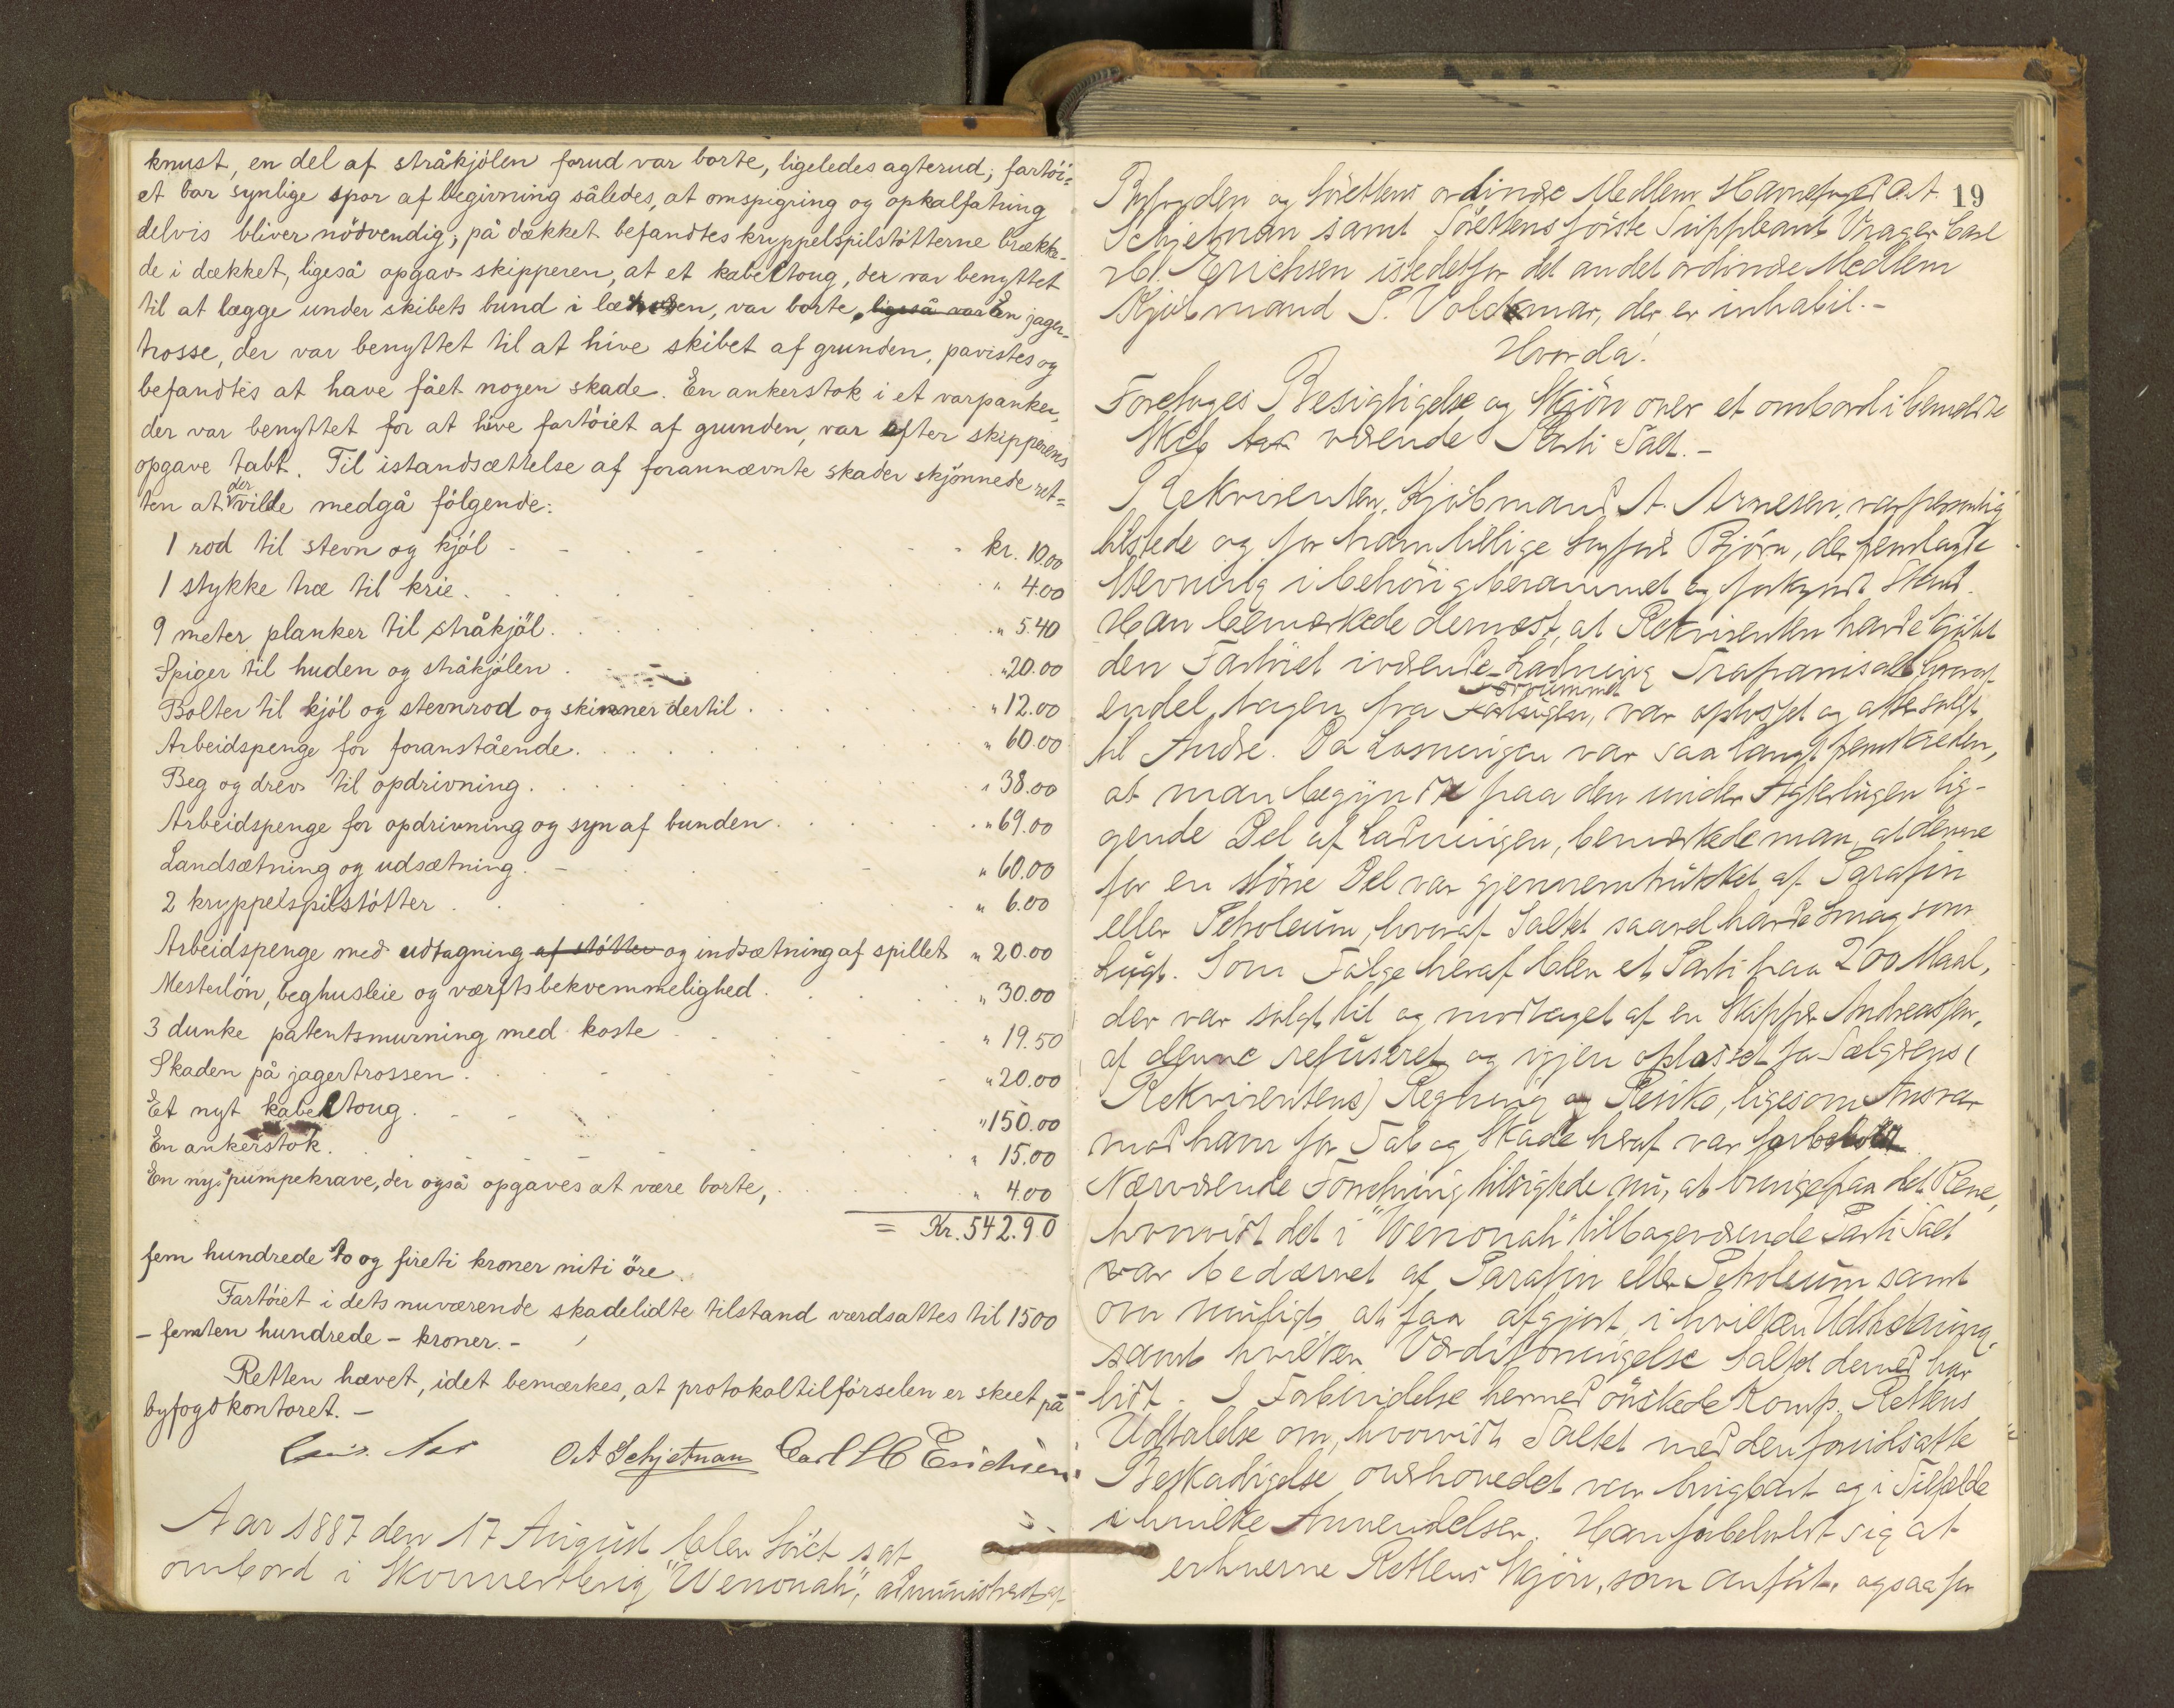 knust, en del af stråkjölen forud var borte, ligeledes agterud; fartöi=
et bar synlige spor af begivning således, at omspigring og opkalfatring
delvis bliver nödvendig; på dækket befandtes kryppelspilstötterne brække-
de i dækket, ligeså opgav skipperen, at et kabeltoug, der var benyttet
til at lægge under skibets bund i læ, var borte, ligeså var En jager-
trosse, der var benyttet til at hive skibet af grunden, pavistes og
befandtes at have fået nogen skade. En ankerstok i et varpanker,
der var benyttet for at hive fartöiet af grunden, var efter skipperens
opgave tabt. Til istandsættelse af forannævnte skader skjönnede ret=
ten at der vilde medgå fölgende:
1 rod til stevn og kjöl - kr. 10.00
1 stykke træ til krie. " 4.00
9 meter planker til stråkjöl. " 5.40
Spiger til huden og stråkjölen. " 20.00
Bolter til kjöl og stevnrod og skinner dertil. " 12.00
Arbeidspenge for foranstående. " 60.00
Beg og drev til opdrivning. " 38.00
Arbeidspenge for opdrivning og syn af bunden. " 69.00
Landsætning og udsætning. " 60.00
2 kryppelspilstötter. " 6.00
Arbeidspenge med udtagning af stötter og indsætning af spillet " 20.00
Mesterlön, beghusleie og værftsbekvemmelighed. " 30.00
3 dunke patentsmurning med koste " 19.50
Skaden på jagertrossen. " 20.00
Et nyt kabeltoug. " 150.00
En ankerstok. " 15.00
En ny pumpekrave, der også opgaves at være borte, " 4.00
= Kr. 542.90
fem hundrede to og fireti kroner niti öre.
Fartöiet i dets nuværende skadelidte tilstand værdsattes til 1500
- femten hundrede - kroner. -
Retten hævet, idet bemærkes, at protokoltilförselen er skeet på
byfogdkontoret. -
O A Schjetnan Carl H Erichsen
Aar 1887 den 17 August blev Söret sat
ombord i Skonnertbrig "Wenonah", administreret af
19
Byfogden og Sörettens ordinære Medlem Havnefoged O. A.
Schjetnan samt Sörettens förste Suppleant Vrager Carl
H. Erichsen istedetfor det andet ordinære Medlem
Kjöbmand S. Voldemar, der er inhabil. -
Hvorda!
Foretoges Besigtigelse og Skjön over et ombord i bemeldte
Skib værende Parti Salt. -
Rekvirenten, Kjöbmand A. Arnesen, var personlig
tilstede og for ham tillige Sagförer Björn, der fremlagde
Stevning i behörig berammet og forkyndt Stand.
Han bemærkede dernæst, at Rekvirenten havde kjöbt
den Fartöiet iværende Ladning Trapanisalt hvoraf
endel, tagen fra Forrummet, var oplosset og atter solgt
til Andre. Da Losningen var saa langt fremskreden,
at man begyndte paa den under Agterlugen lig-
gende Del af Ladningen, bemærkede man, at denne
for en större Del var gjennemtrukket af Parafin
eller Petroleum, hvoraf Saltet saavel havde Smag som
Lugt. Som Fölge heraf blev et Parti paa 200 Maal,
der var solgt til og modtaget af en Skipper Andreassen,
af denne refuseret og igjen oplosset for Sælgerens (
Rekvirentens) Regning og Risiko, ligesom Ansvar
mod ham for Tab og Skade heraf var forbeholdt.
Nærværende Forretning tilsigtede nu, at bringe paa det Rene,
hvorvidt det i "Wenonah" tilbageværende Parti Salt
var bedærvet af Parafin eller Petroleum samt
om muligt at faa afgjort, i hvilken Udstrækning
samt hvilken Værdiforringelse Saltet derved har
lidt. I Forbindelse hermed önskede Komp. Rettens
Udtalelse om, hvorvidt Saltet med den foruds​atte
Beskadigelse overhovedet var brugbart og i Tilfælde
i hvilke Anvendelser. Han forbeholdt sig at
erhverve Rettens Skjön, som anfört, ogsaa for